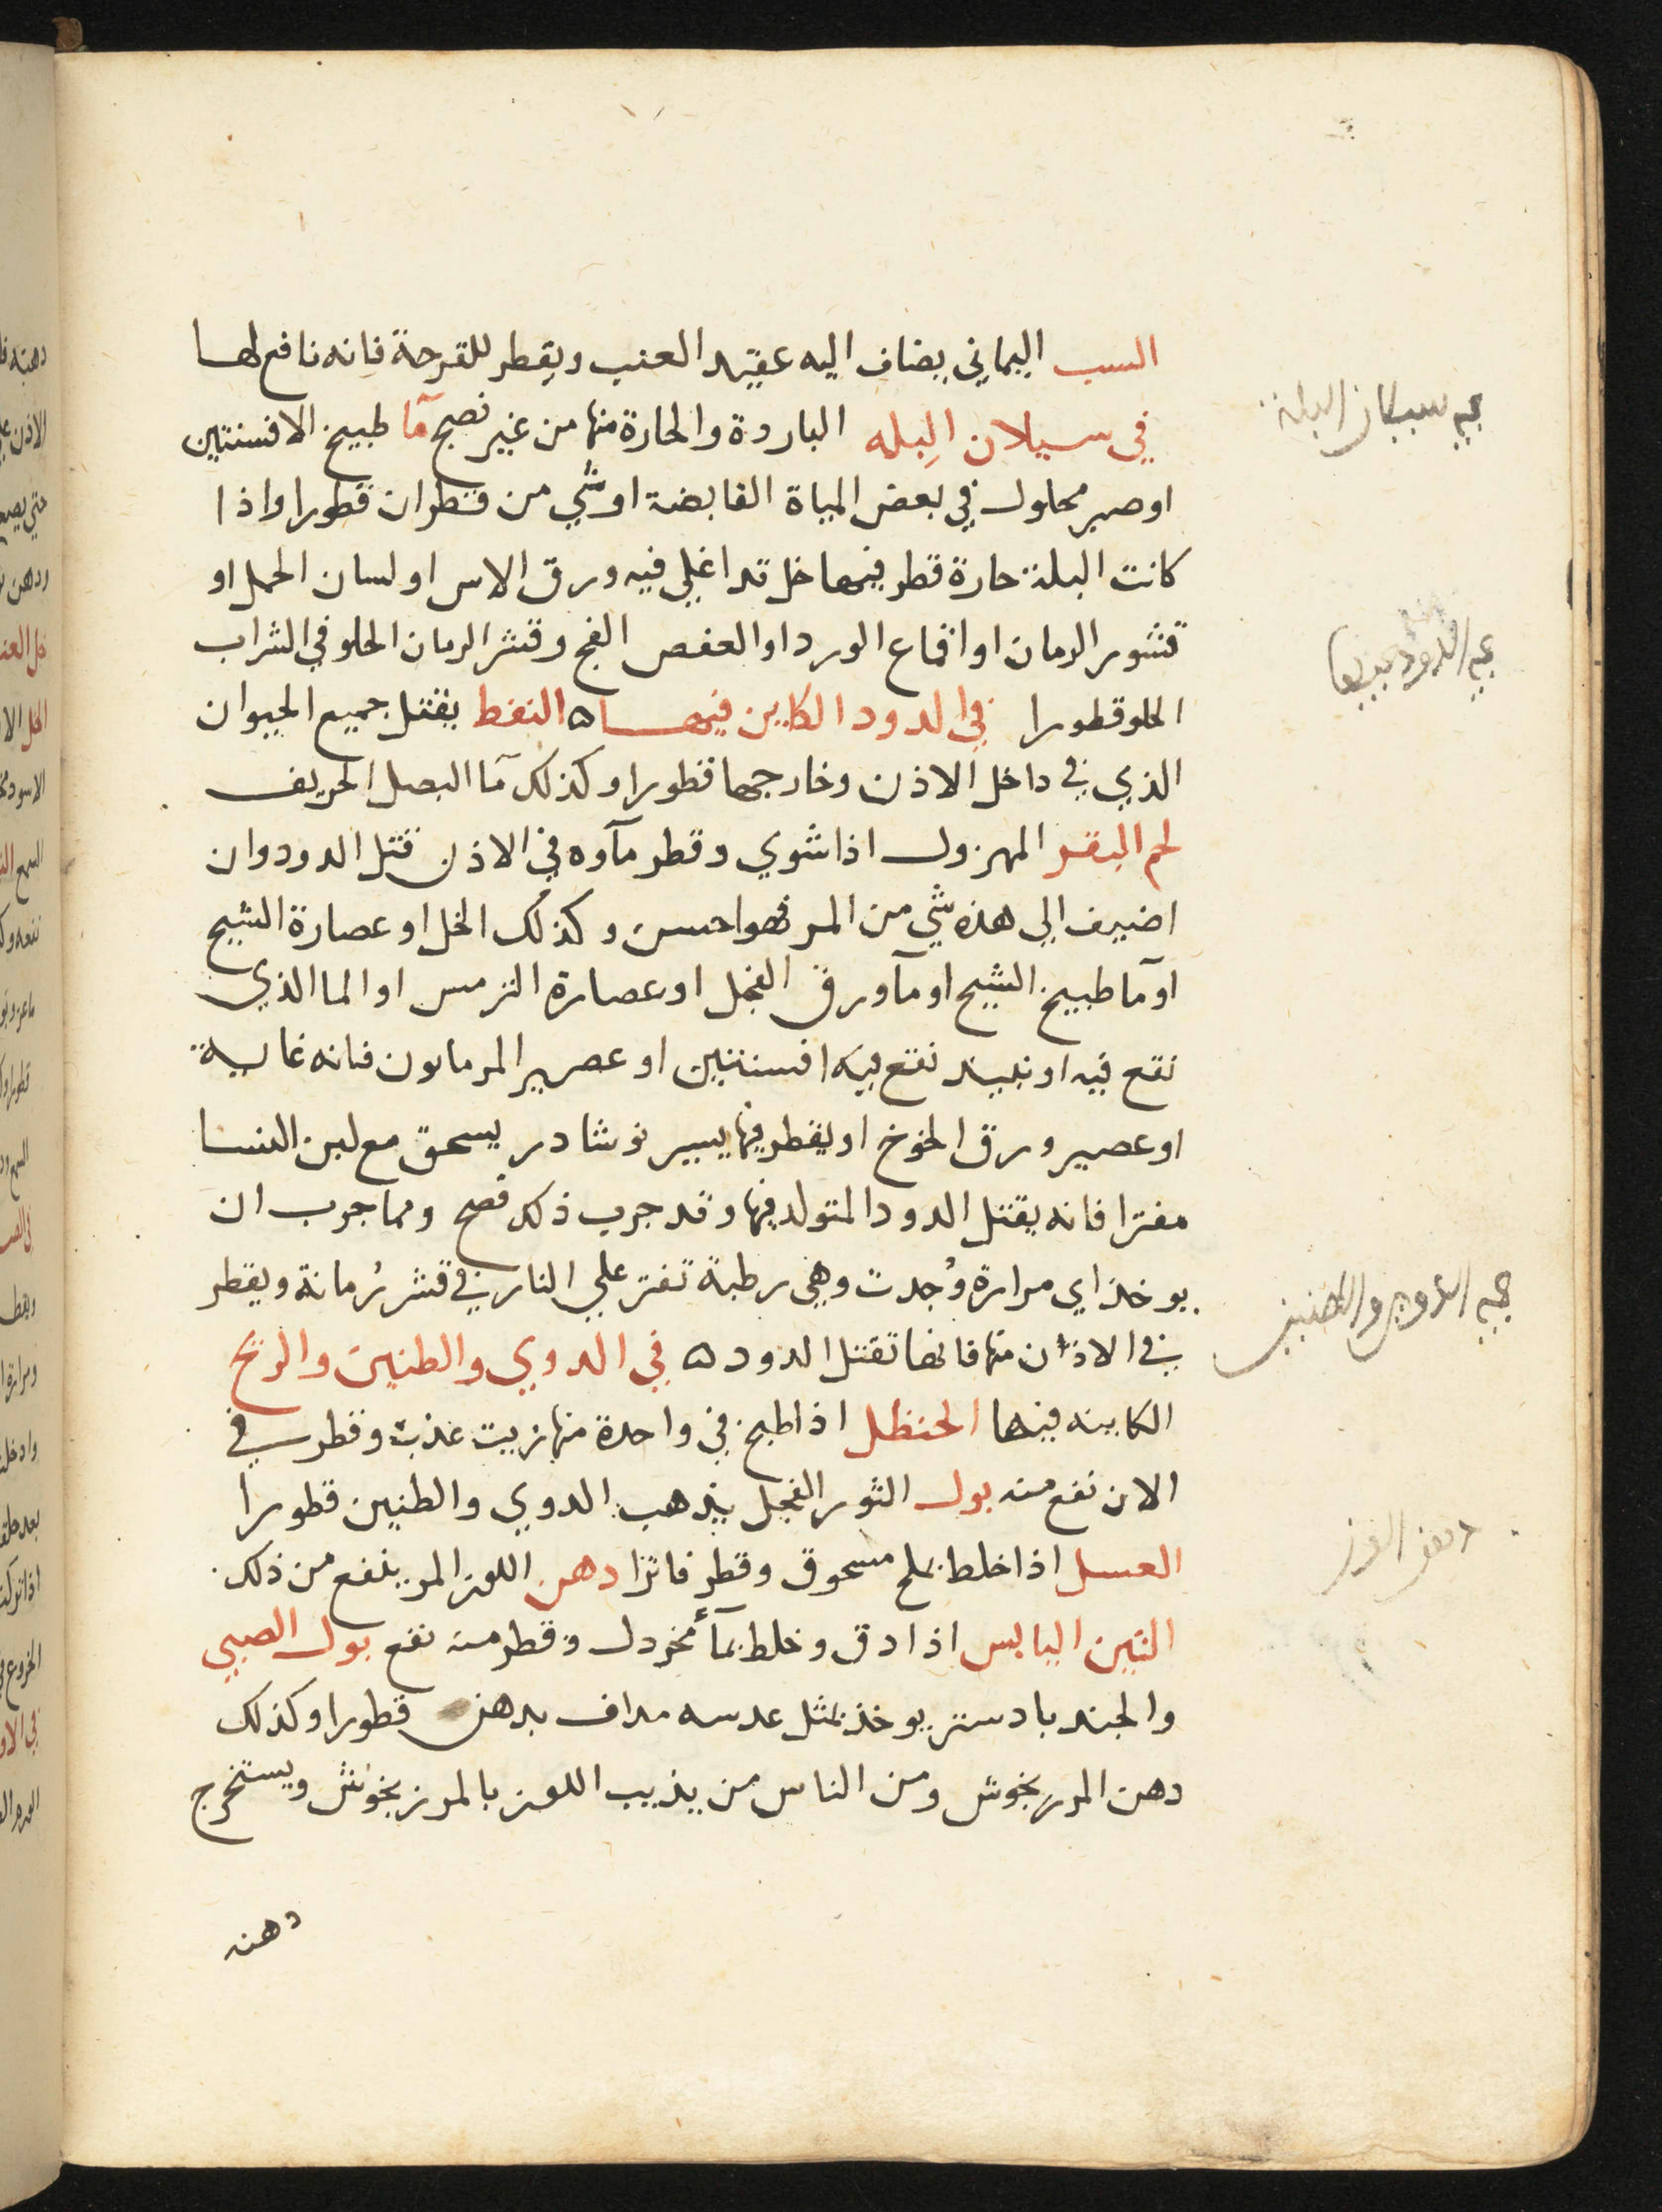 السب اليماني يضاف اليه عقيد العنب ويقطر للقرحة فانه نافع لها
في سيلان البله الباردة والحارة منها من غير نصبح مآ طبيخ الافسنتين
اوصبر محلول في بعض المياة القابضة اوشي من قطران قطورا واذا
كانت البلة حارة قطر فيها خل قد اغلي فيه ورق الاس اولسان الحمل او
قشور الرمان او اقماع الورد او العفص الفج وقشر الرمان الحلو في الشراب
الحلو قطورا في الدود الكاين فيها ه النفط يقتل جميع الحيوان
الذي في داخل الاذن وخارجها قطورا وكذلك مآ البصل الحريف
لحم البقر المهزول اذا شوي وقطر مآوه في الاذن قتل الدود وان
اضيف الى هذه شي من المر فهو احسن وكذلك الخل او عصارة الشيح
او مآ طبيخ الشيح او مآ ورق الفجل او عصارة الترمس او الما الذي
نقع فيه او نبيذ نقع فيه افسنتين او عصير المرماىون فانه غاية
او عصير ورق الخوخ او يقطر فيها يسير نوشادر يسحق مع لبن النسا
مفترا فانه يقتل الدود المتولد فيها وقد جرب ذلك فصح ومما جرب ان
يوخذ اي مرارة وُجدت وهي رطبة تفتر علي النار في قشر رُمانة ويقطر
في الاذان منها فانها تقتل الدود ه في الدوي والطنين والريح
الكاينه فيها الحنظل اذا طبخ في واحدة منها زيت عذب وقطر في
الاذن نفع منه بول الثور الفحل يذهب الدوي والطنين قطورا
العسل اذا خلط بملح مسحوق وقطر فاترا دهن اللوز المر ينفع من ذلك
التين اليابس اذا دق وخلط بمآ خردل وقطر منه نفع بول الصبي
والجندبادستر يوخذ بمثل عدسه مداف بدهن قطورا وكذلك
دهن المرزنجوش ومن الناس من يذيب اللوز بالمرزنجوش ويستخرج
دهنه
في سيلان البلة
في الدود فيها
في الدوي والطنين
دهن اللوز